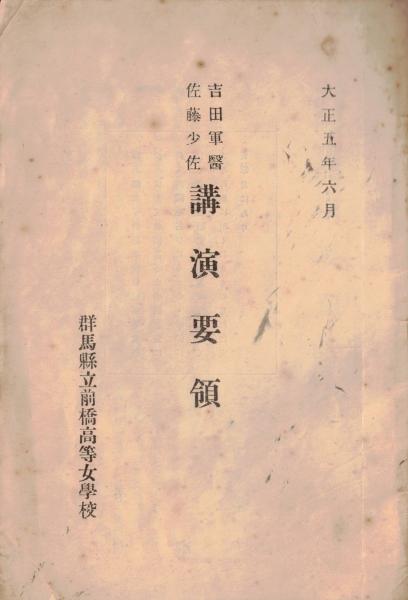 大正五年六月
吉田軍醫
佐藤少佐
講演要領
群馬縣立前橋高等女學校